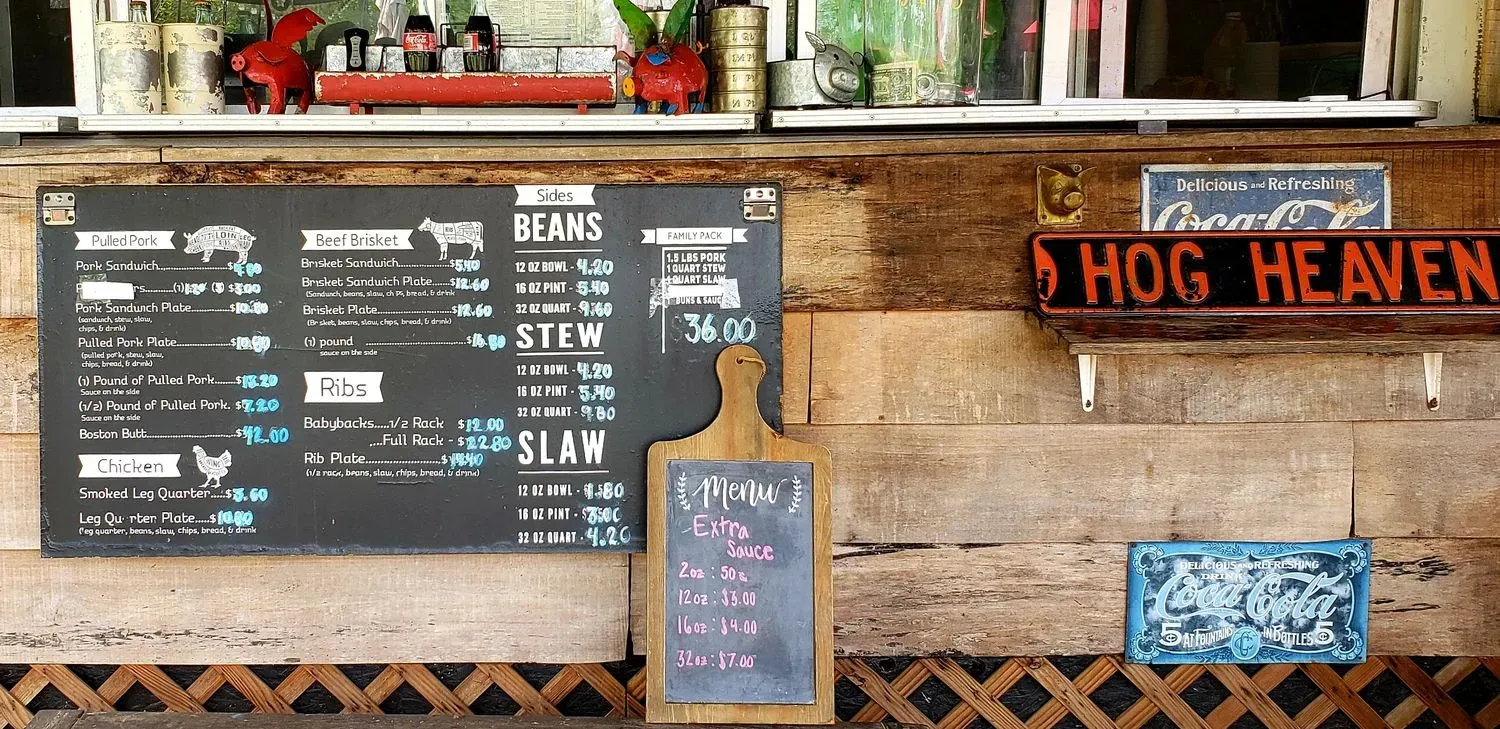 Delicious and Refreshing
Coca-Cola
HOG HEAVEN
Pulled Pork
Pork Sandwich
Pork Sandwich Plate
(sandwich, stew, slaw,
chips, & drink)
Pulled Pork Plate
(pulled pork, stew, slaw,
chips, bread, & drink)
(1) Pound of Pulled Pork.......$13.20
Sauce on the side
(1/2) Pound of Pulled Pork. $7.20
Sauce on the side
Boston Butt......$42.00
Chicken
Smoked Leg Quarter....$3.60
Leg Qu rter Plate.....$10.80
(leg quarter, beans, slaw, chips, bread, & drink
Beef Brisket
Brisket Sandwich......$5.40
Brisket Sandwich Plate......$12.60
(Sandwich, beans, slaw, chips, bread, & drink)
Brisket Plate......$12.60
(Brisket, beans, slaw, chips, bread, & drink)
(1) pound
sauce on the side
Ribs
Babybacks....1/2 Rack $12.00
....Full Rack - $22.80
Rib Plate
(1/2 rack, beans, slaw, chips, bread, & drink)
Sides
BEANS
12 OZ BOWL - 4.20
16 OZ PINT - 5.40
32 OZ QUART - 9.60
STEW
12 OZ BOWL - 4.20
16 OZ PINT - 5.40
32 OZ QUART - 9.60
SLAW
12 OZ BOWL - 1.80
16 OZ PINT - 3.00
32 OZ QUART - 4.20
FAMILY PACK
1.5 LBS PORK
1 QUART STEW
1 QUART SLAW
BUNS & SAUCE
36.00
Menu
- Extra
Sauce
2oz : 50¢
12oz : $3.00
16oz : $4.00
32oz : $7.00
DELICIOUS AND REFRESHING
DRINK
Coca Cola
5 AT FOUNTAINS IN BOTTLES 5